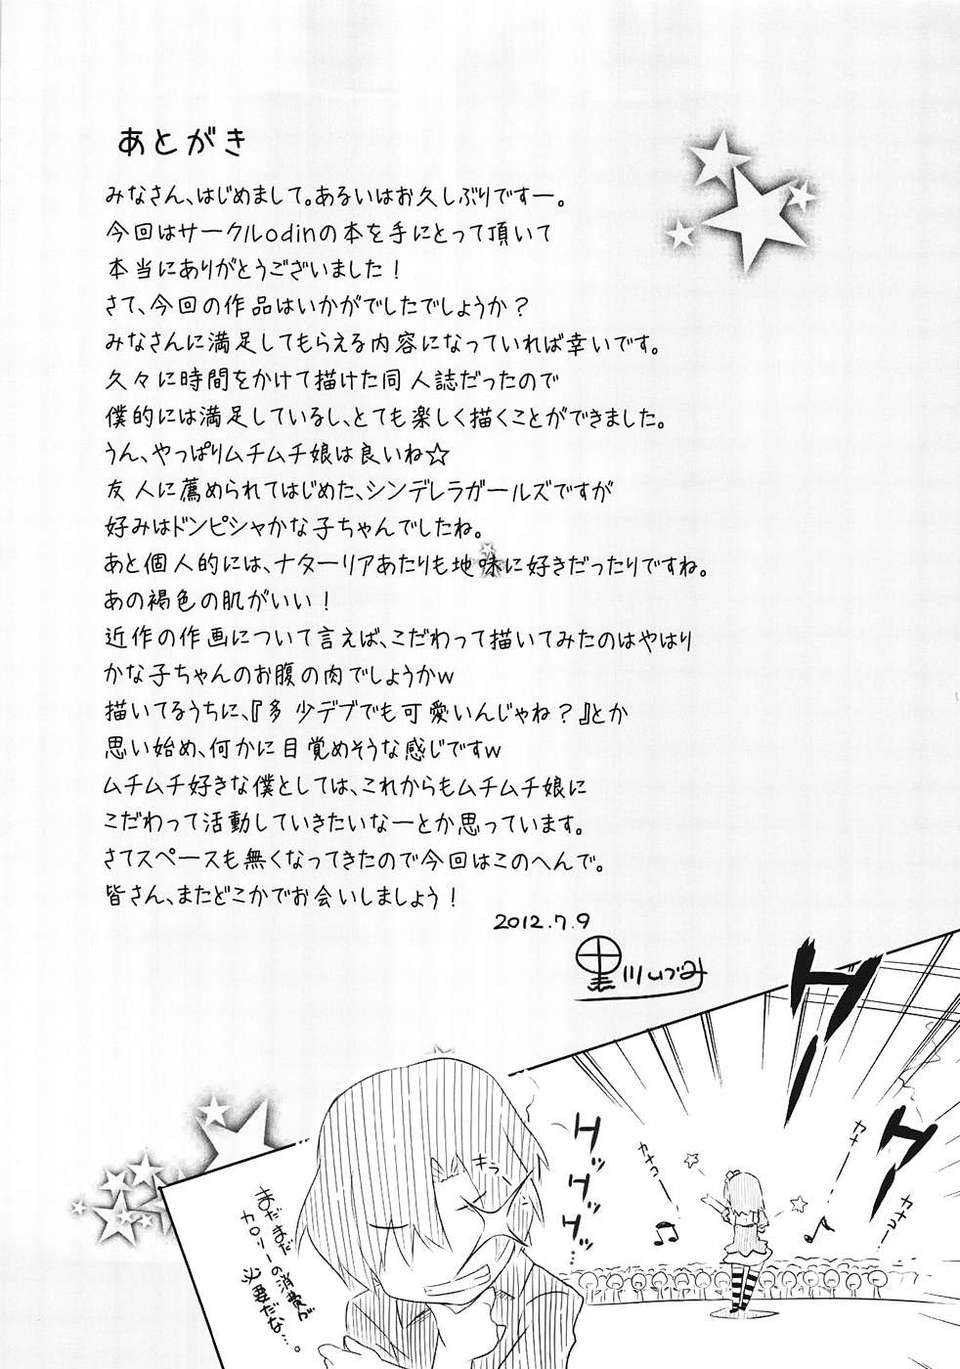 あとがき
みなさん、はじめまして。あるいはお久しぶりですー。
今回はサークルodinの本を手にとって頂いて
本当にありがとうございました！
さて、今回の作品はいかがでしたでしょうか？
みなさんに満足してもらえる内容になっていれば幸いです。
久々に時間をかけて描けた同人誌だったので
僕的には満足しているし、とても楽しく描くことができました。
うん、やっぱりムチムチ娘は良いね☆
友人に薦められてはじめた、シンデレラガールズですが
好みはドンピシャかな子ちゃんでしたね。
あと個人的には、ナターリアあたりも地味に好きだったりですね。
あの褐色の肌がいい！
近作の作画について言えば、こだわって描いてみたのはやはり
かな子ちゃんのお腹の肉でしょうかw
描いてるうちに、『多少デブでも可愛いんじゃね？』とか
思い始め、何かに目覚めそうな感じですw
ムチムチ好きな僕としては、これからもムチムチ娘に
こだわって活動していきたいなーとか思っています。
さてスペースも無くなってきたので今回はこのへんで。
皆さん、またどこかでお会いしましょう！
2012.7.9
黒川いづみ
ワーワー
カナコー
カナー
カナコー
キラーン
まだまだ
カロリーの消費が
必要だな…。